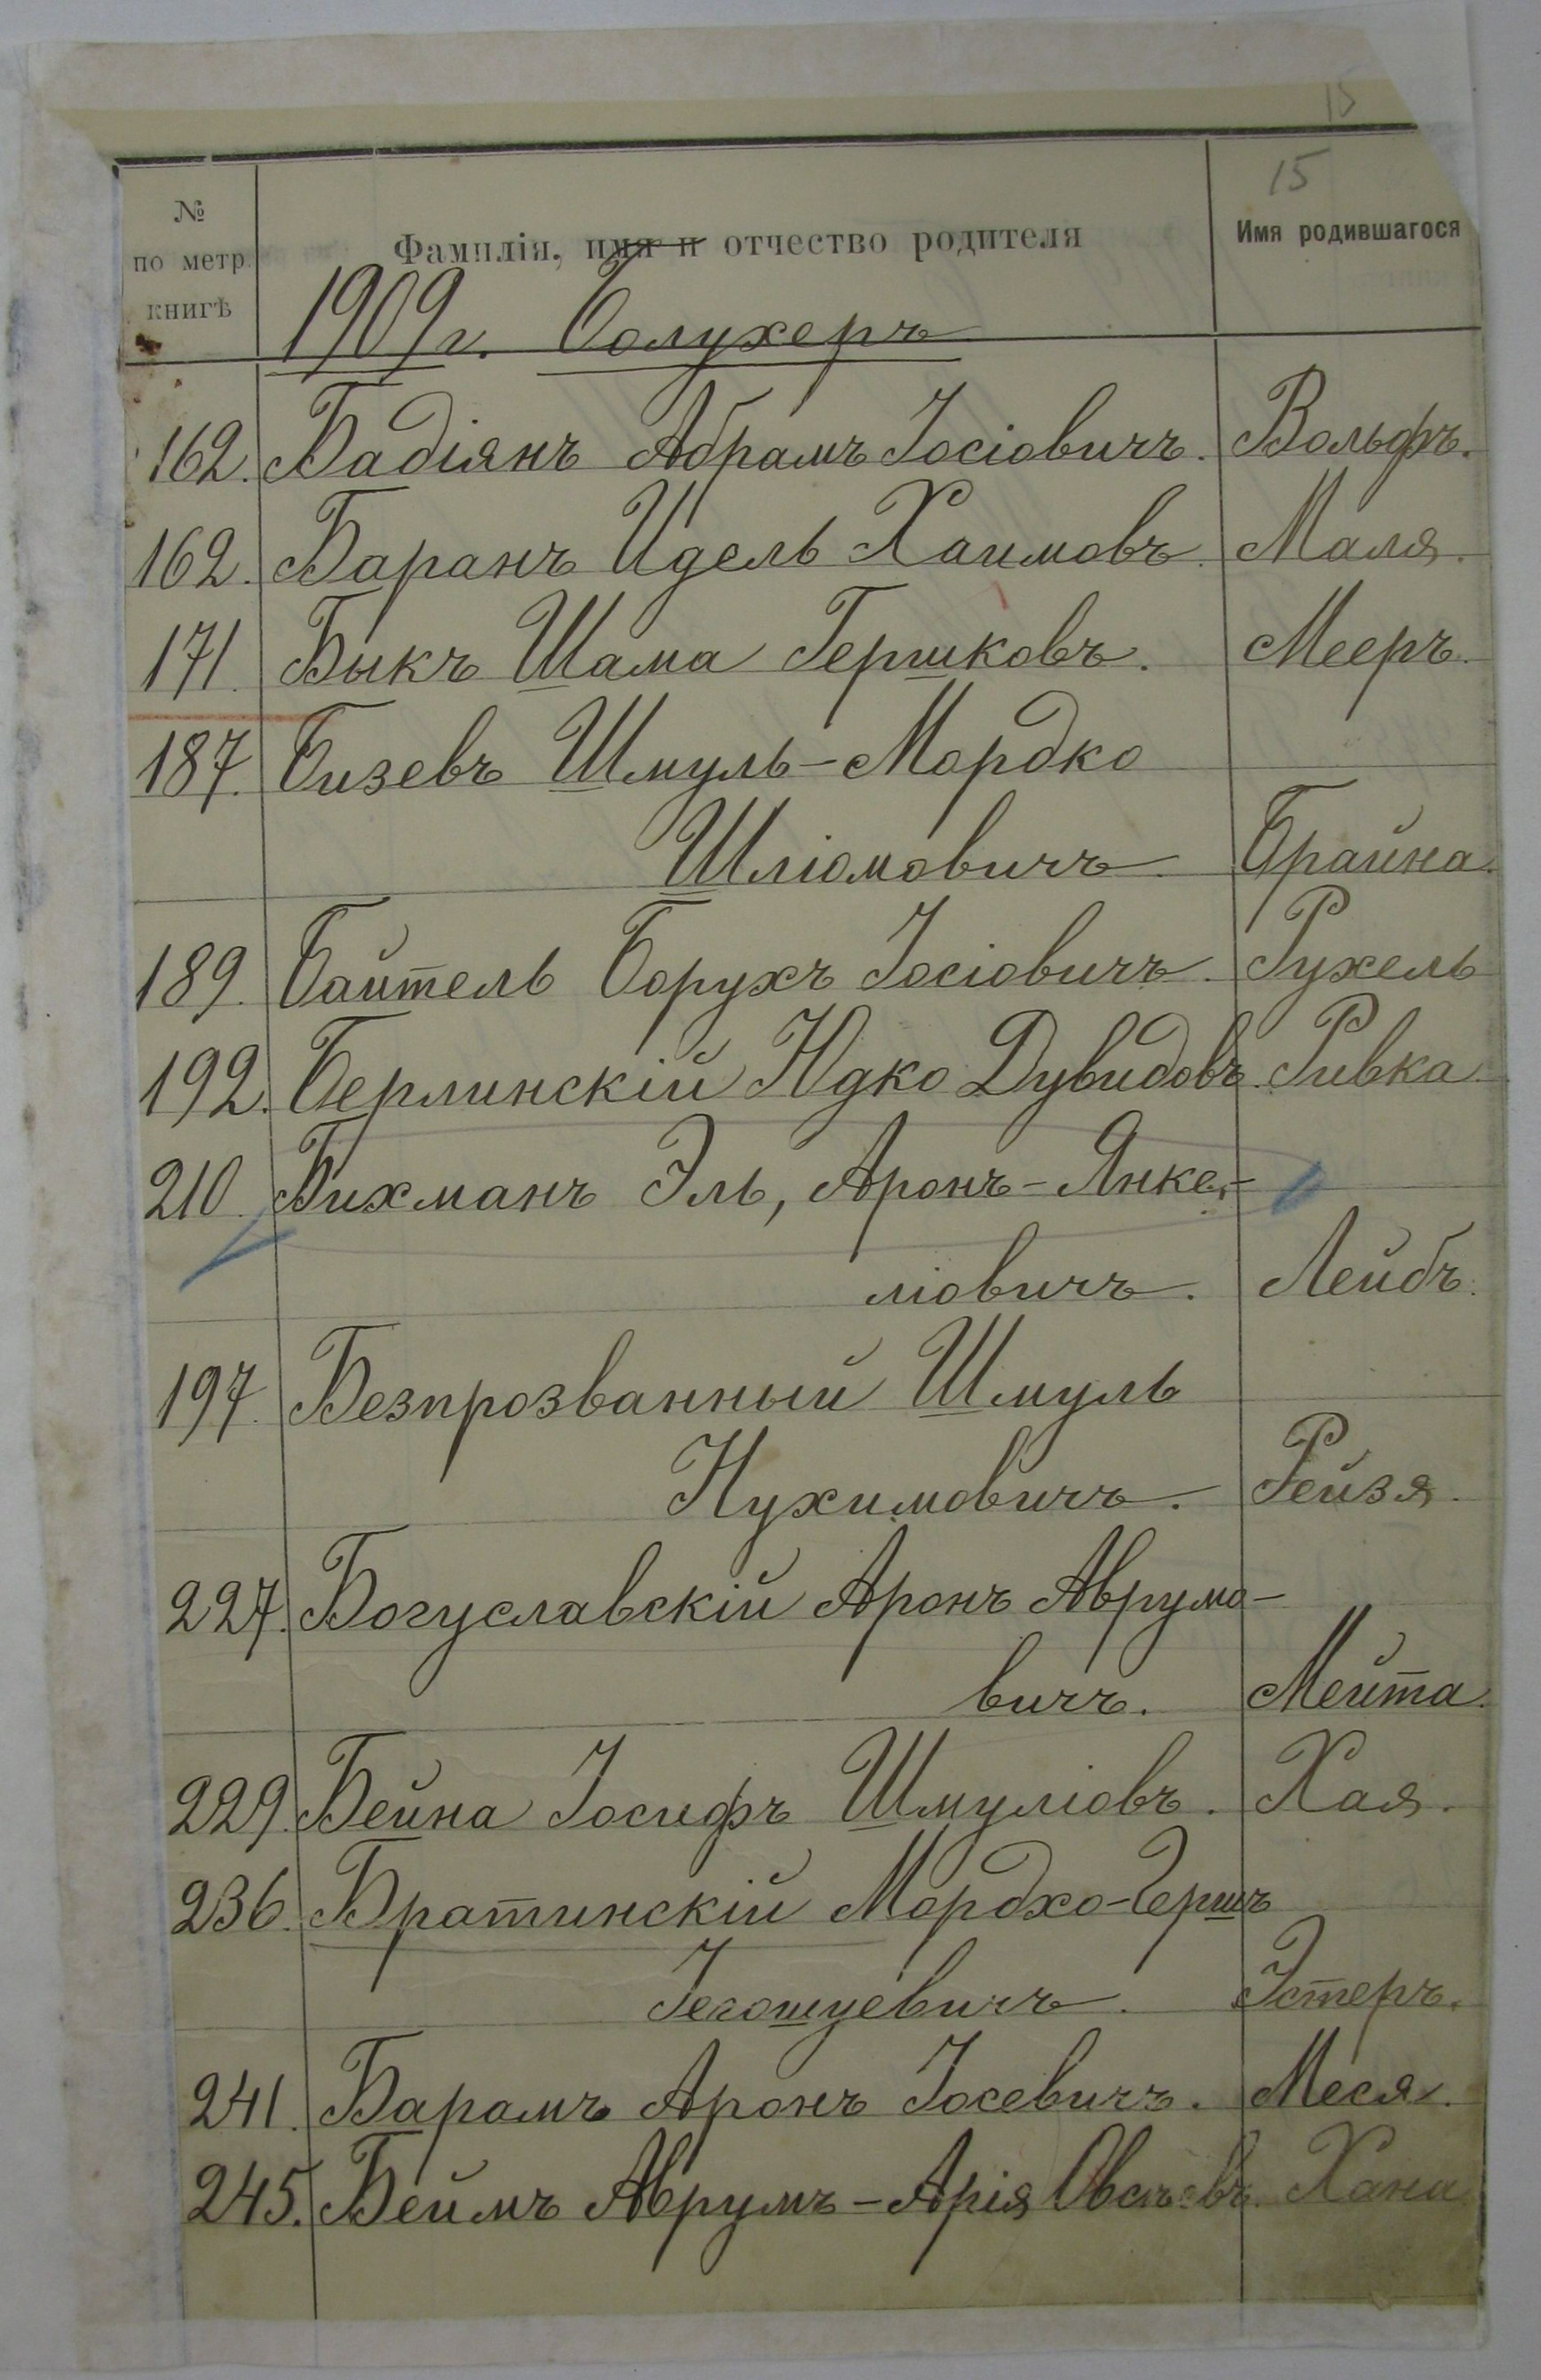 15
15
№ по метр. книгѣ
Фамилія, имя и отчество родителя
Имя родившагося
1909 г. Болухеръ
162. Бадіянъ Абрамъ Іосіовичъ. Вольфъ.
162. Баранъ Идель Хаимовъ. Маля.
171. Быкъ Шама Гершковъ. Мееръ.
187. Бизевъ Шмуль-Мордко
Шліомовичъ. Брайна.
189. Байтель Борухъ Іосіовичъ. Рухель
192. Берлинскій Юдко Дувидовъ. Ривка.
210. Бихманъ Эль, Аронъ-Янке-
ліовичъ. Лейбъ.
197. Безпрозванный Шмуль
Нухимовичъ. Рейзя.
227. Богуславскій Аронъ Аврумо-
вичъ. Мейта.
229. Бейна Іосифъ Шмуліовъ. Хая.
236. Братинскій Мордхо-Гершъ
Іегошуевичъ. Эстеръ.
241. Барамъ Аронъ Іосевичъ. Меся.
245. Беймъ Аврумъ-Арія Овсѣевъ. Хана